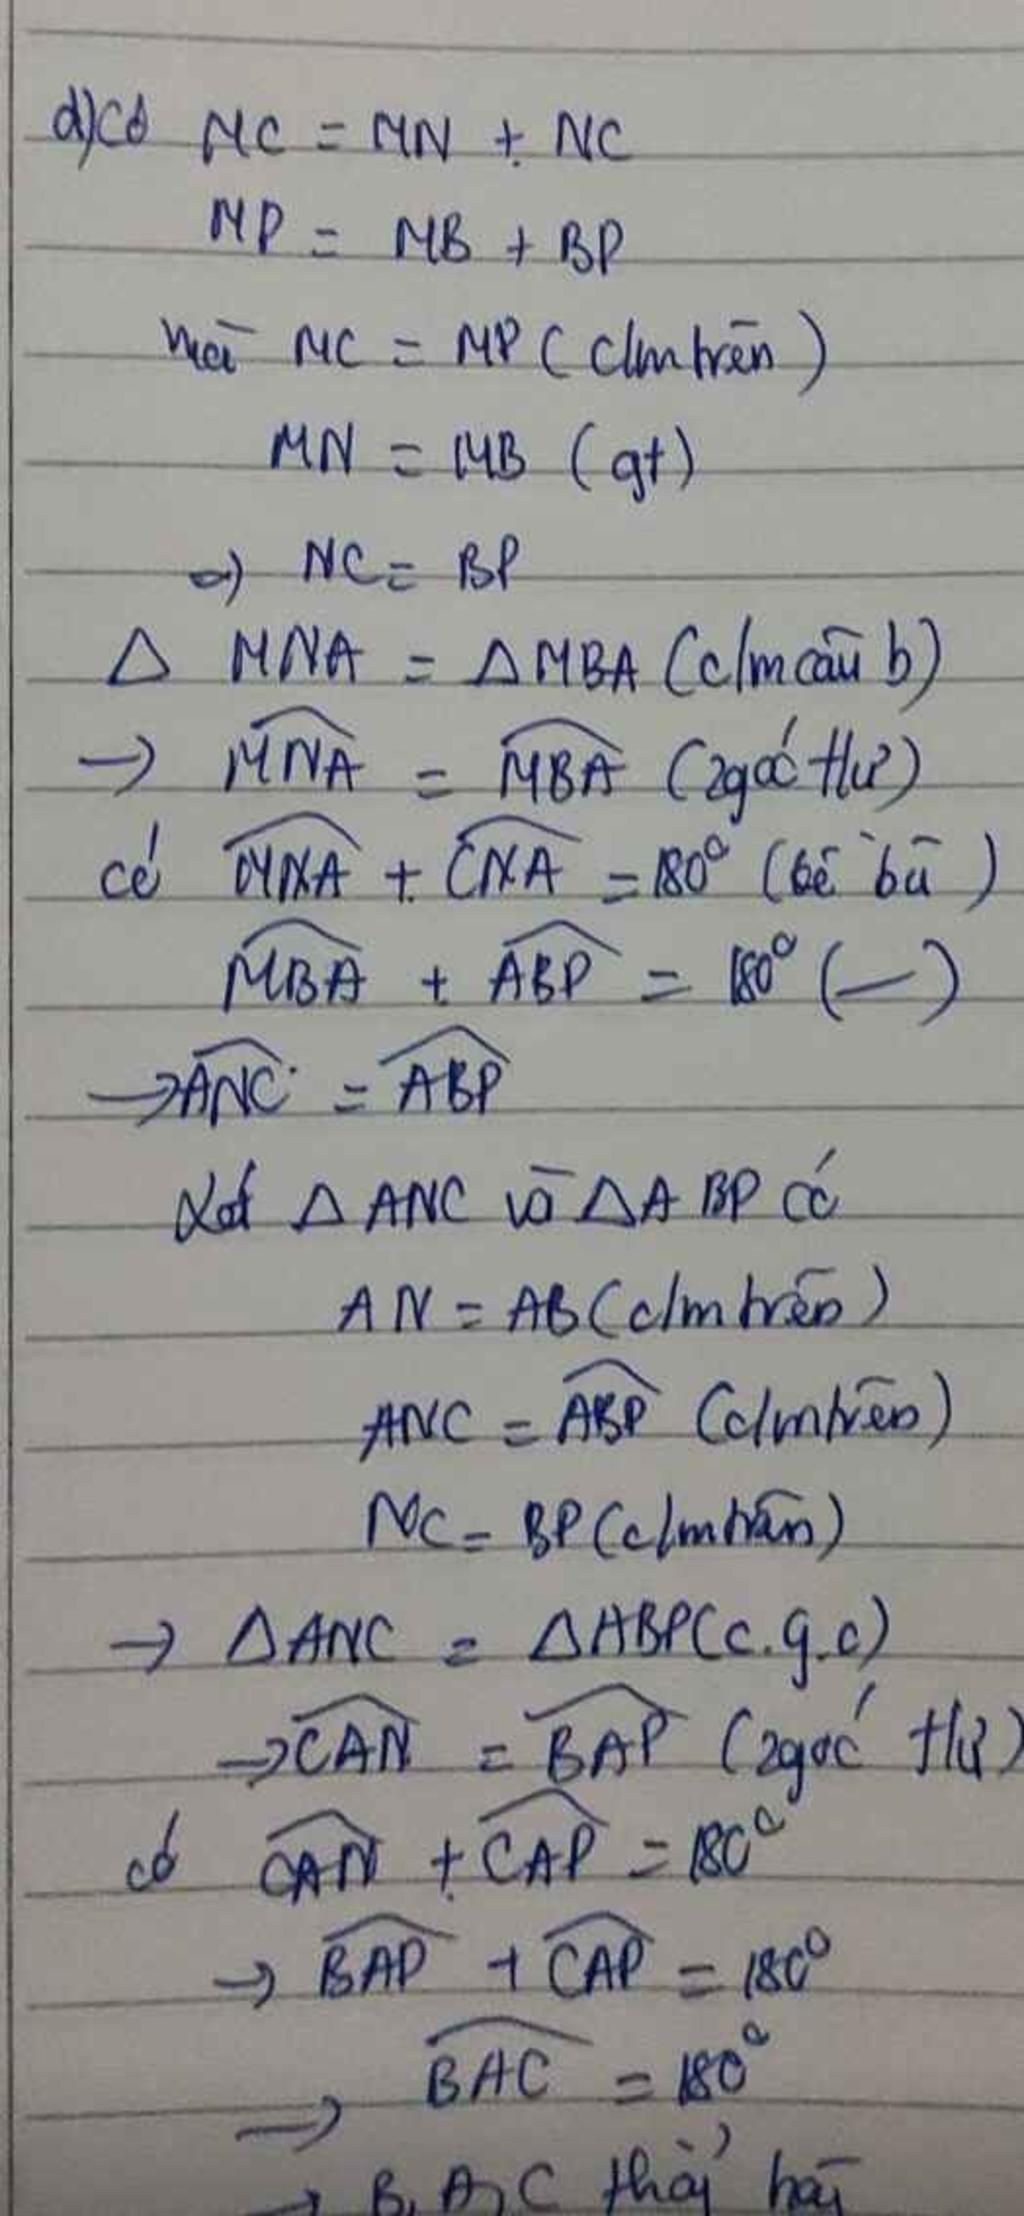 d) Có MC = MN + NC
MP = MB + BP
mà MC = MP (c/m trên)
MN = MB (gt)
=> NC = BP
Δ MNA = Δ MBA (c/m câu b)
-> \widehat{MNA} = \widehat{MBA} (2 góc t/ư)
có \widehat{MNA} + \widehat{CNA} = 180° (kề bù)
\widehat{MBA} + \widehat{ABP} = 180° (—)
-> \widehat{ANC} = \widehat{ABP}
Xét Δ ANC và Δ ABP có
AN = AB (c/m trên)
ANC = \widehat{ABP} (c/m trên)
NC = BP (c/m trên)
-> Δ ANC = Δ ABP (c.g.c)
-> \widehat{CAN} = \widehat{BAP} (2 góc t/ư)
có \widehat{CAN} + \widehat{CAP} = 180°
-> \widehat{BAP} + \widehat{CAP} = 180°
-> \widehat{BAC} = 180°
-> B, A, C thẳng hàng